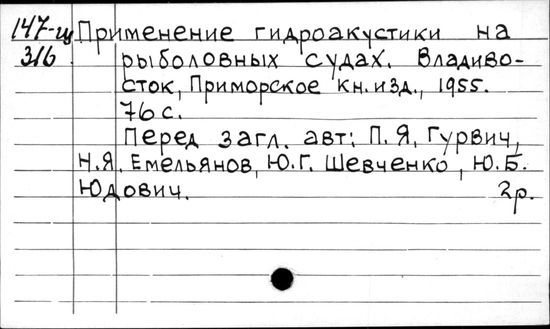 147-щ Применение гидроакустики на
316 рыболовных судах. Владиво-
сток, Приморское кн. изд., 1955.
76 с.
Перед загл. авт: П. Я. Гурвич,
Н. Я. Емельянов, Ю. Г. Шевченко, Ю. Б.
Юдович. 2р.